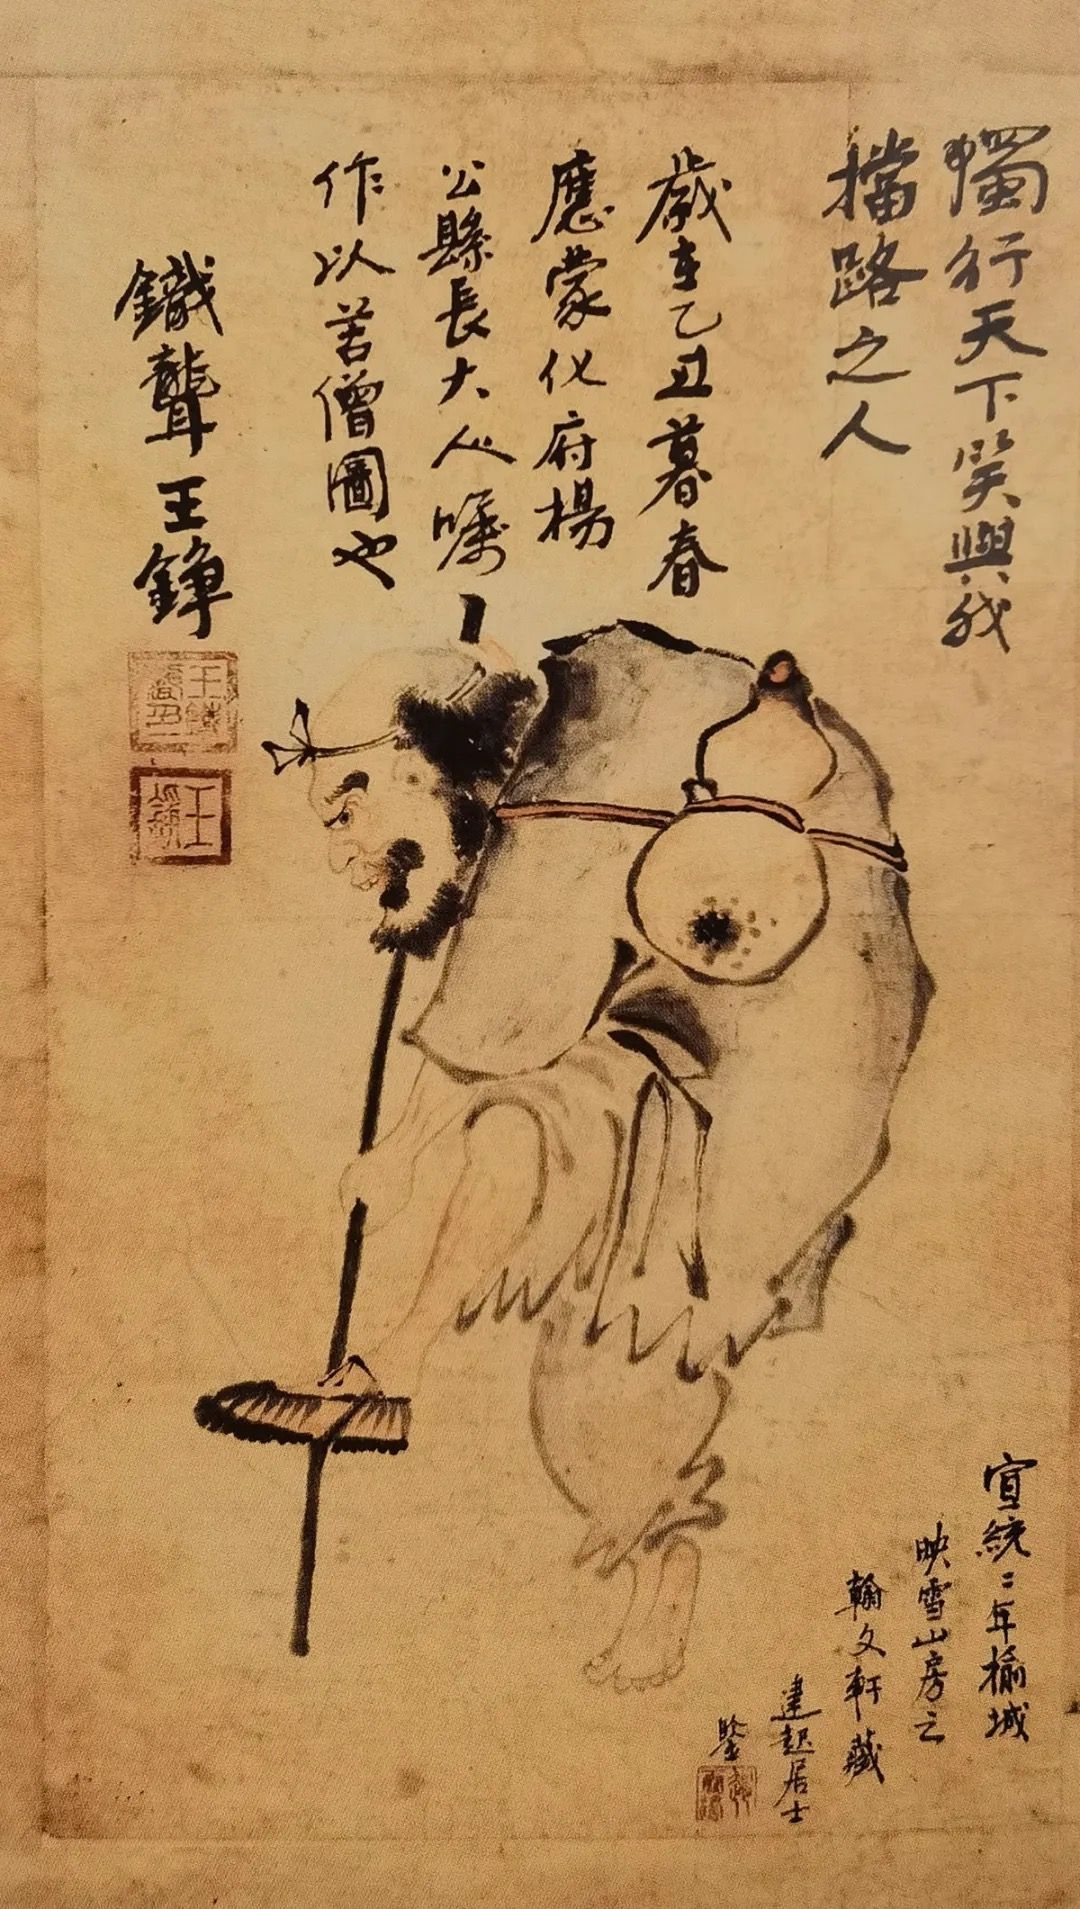 獨行天下笑與我
擋路之人
歲在乙丑暮春
應蒙化府楊
公縣長大人囑
作以苦僧圖也
鐵聾王錞
宣統二年榆城
映雪山房之
翰文軒藏
建起居士
鑒